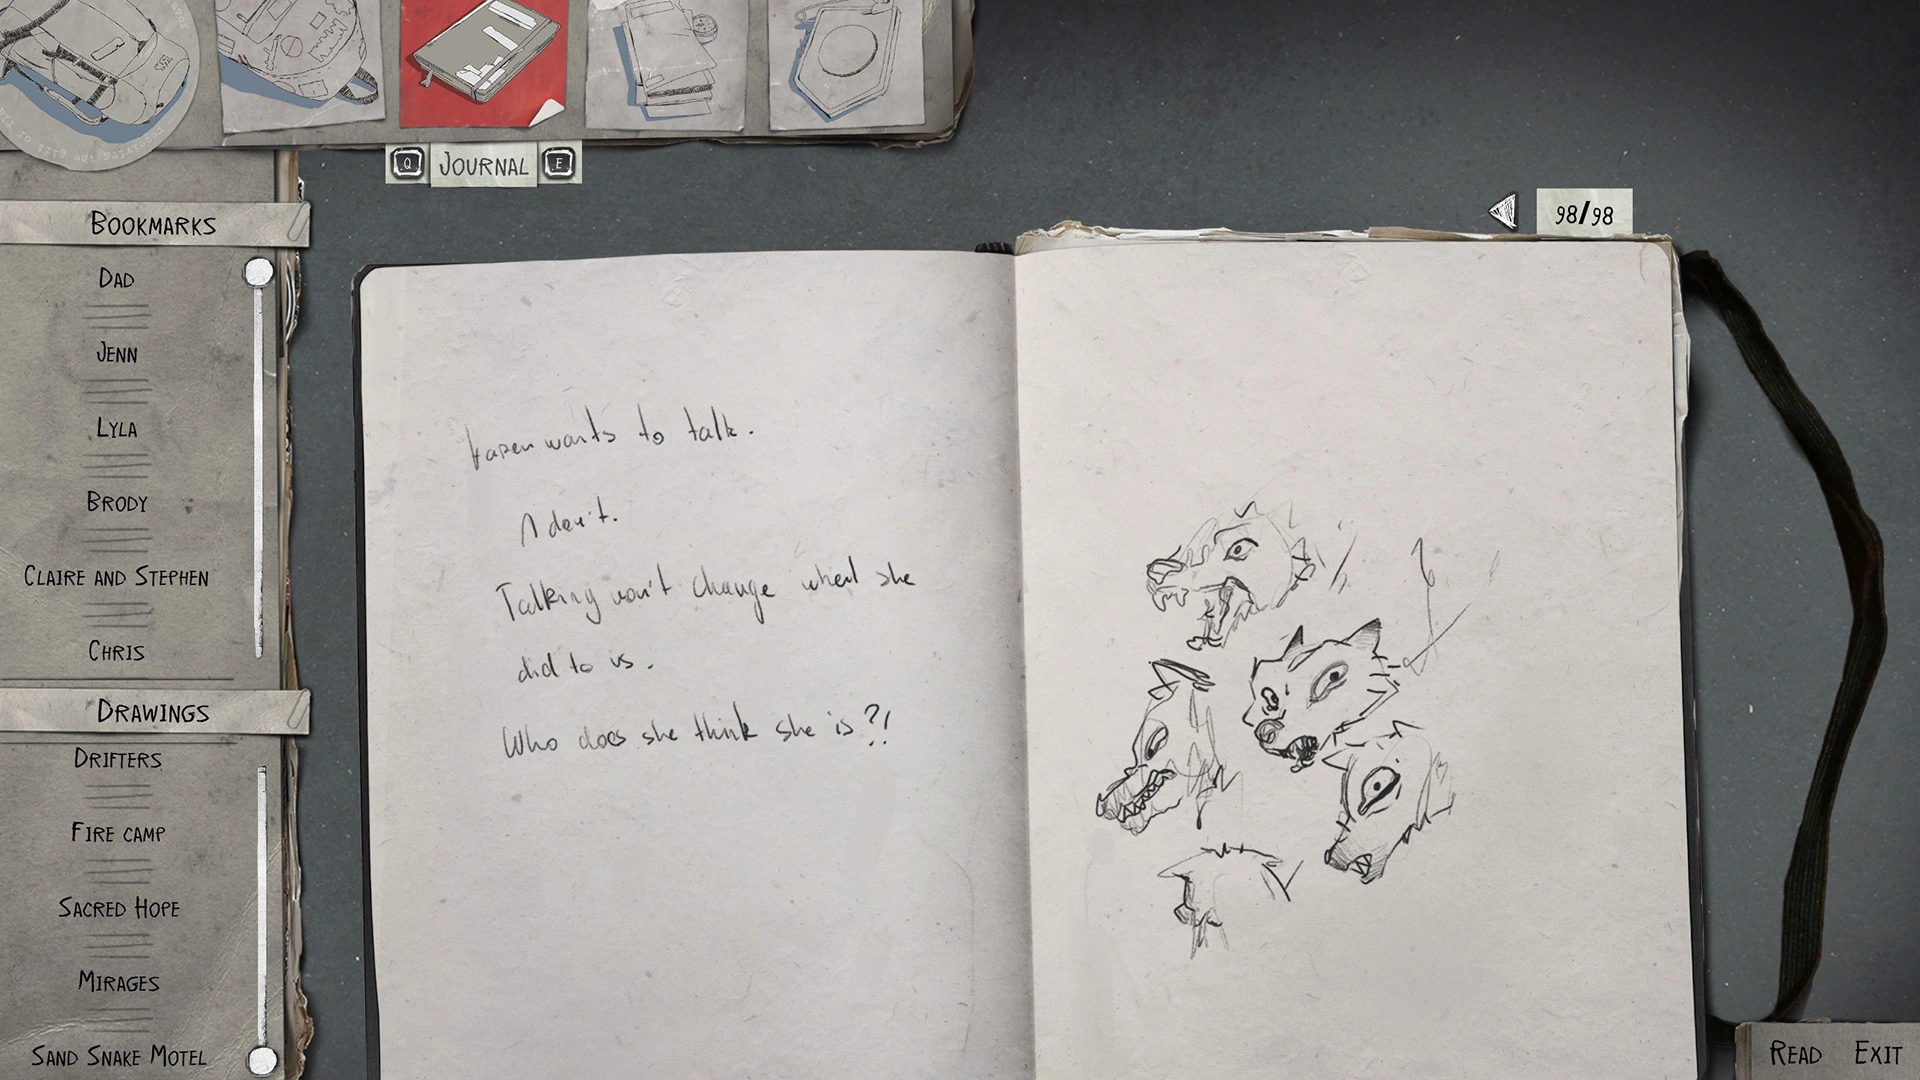 Q JOURNAL E
98/98
BOOKMARKS
DAD
JENN
LYLA
BRODY
CLAIRE AND STEPHEN
CHRIS
DRAWINGS
DRIFTERS
FIRE CAMP
SACRED HOPE
MIRAGES
SAND SNAKE MOTEL
Karen wants to talk.
I don't.
Talking won't change what she
did to us.
Who does she think she is?!
READ EXIT